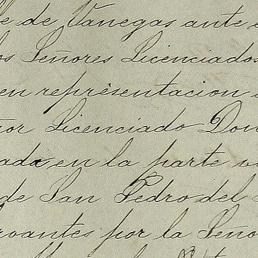 de Vanegas ante
os Señores Licenciados
en representacion
or Licenciado Don
ada en la parte
de San Pedro del
rvantes por la Seño